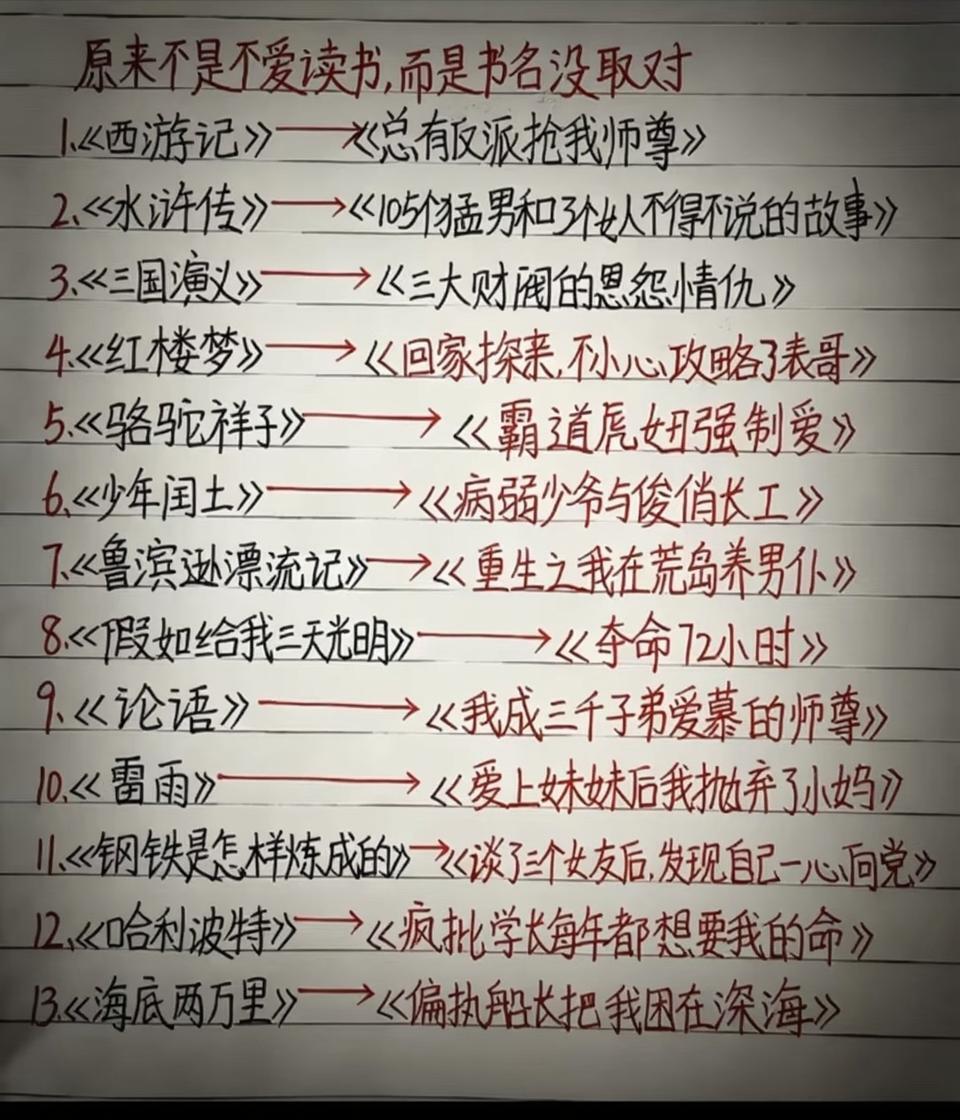 原来不是不爱读书,而是书名没取对
1.《西游记》→《总有反派抢我师尊》
2.《水浒传》→《105个猛男和3个女人不得不说的故事》
3.《三国演义》→《三大财阀的恩怨情仇》
4.《红楼梦》→《回家探亲,不小心攻略了表哥》
5.《骆驼祥子》→《霸道虎妞强制爱》
6.《少年闰土》→《病弱少爷与俊俏长工》
7.《鲁滨逊漂流记》→《重生之我在荒岛养男仆》
8.《假如给我三天光明》→《夺命72小时》
9.《论语》→《我成三千子弟爱慕的师尊》
10.《雷雨》→《爱上妹妹后我抛弃了小妈》
11.《钢铁是怎样炼成的》→《谈了三个女友后,发现自己一心向党》
12.《哈利波特》→《疯批学长每年都想要我的命》
13.《海底两万里》→《偏执船长把我困在深海》